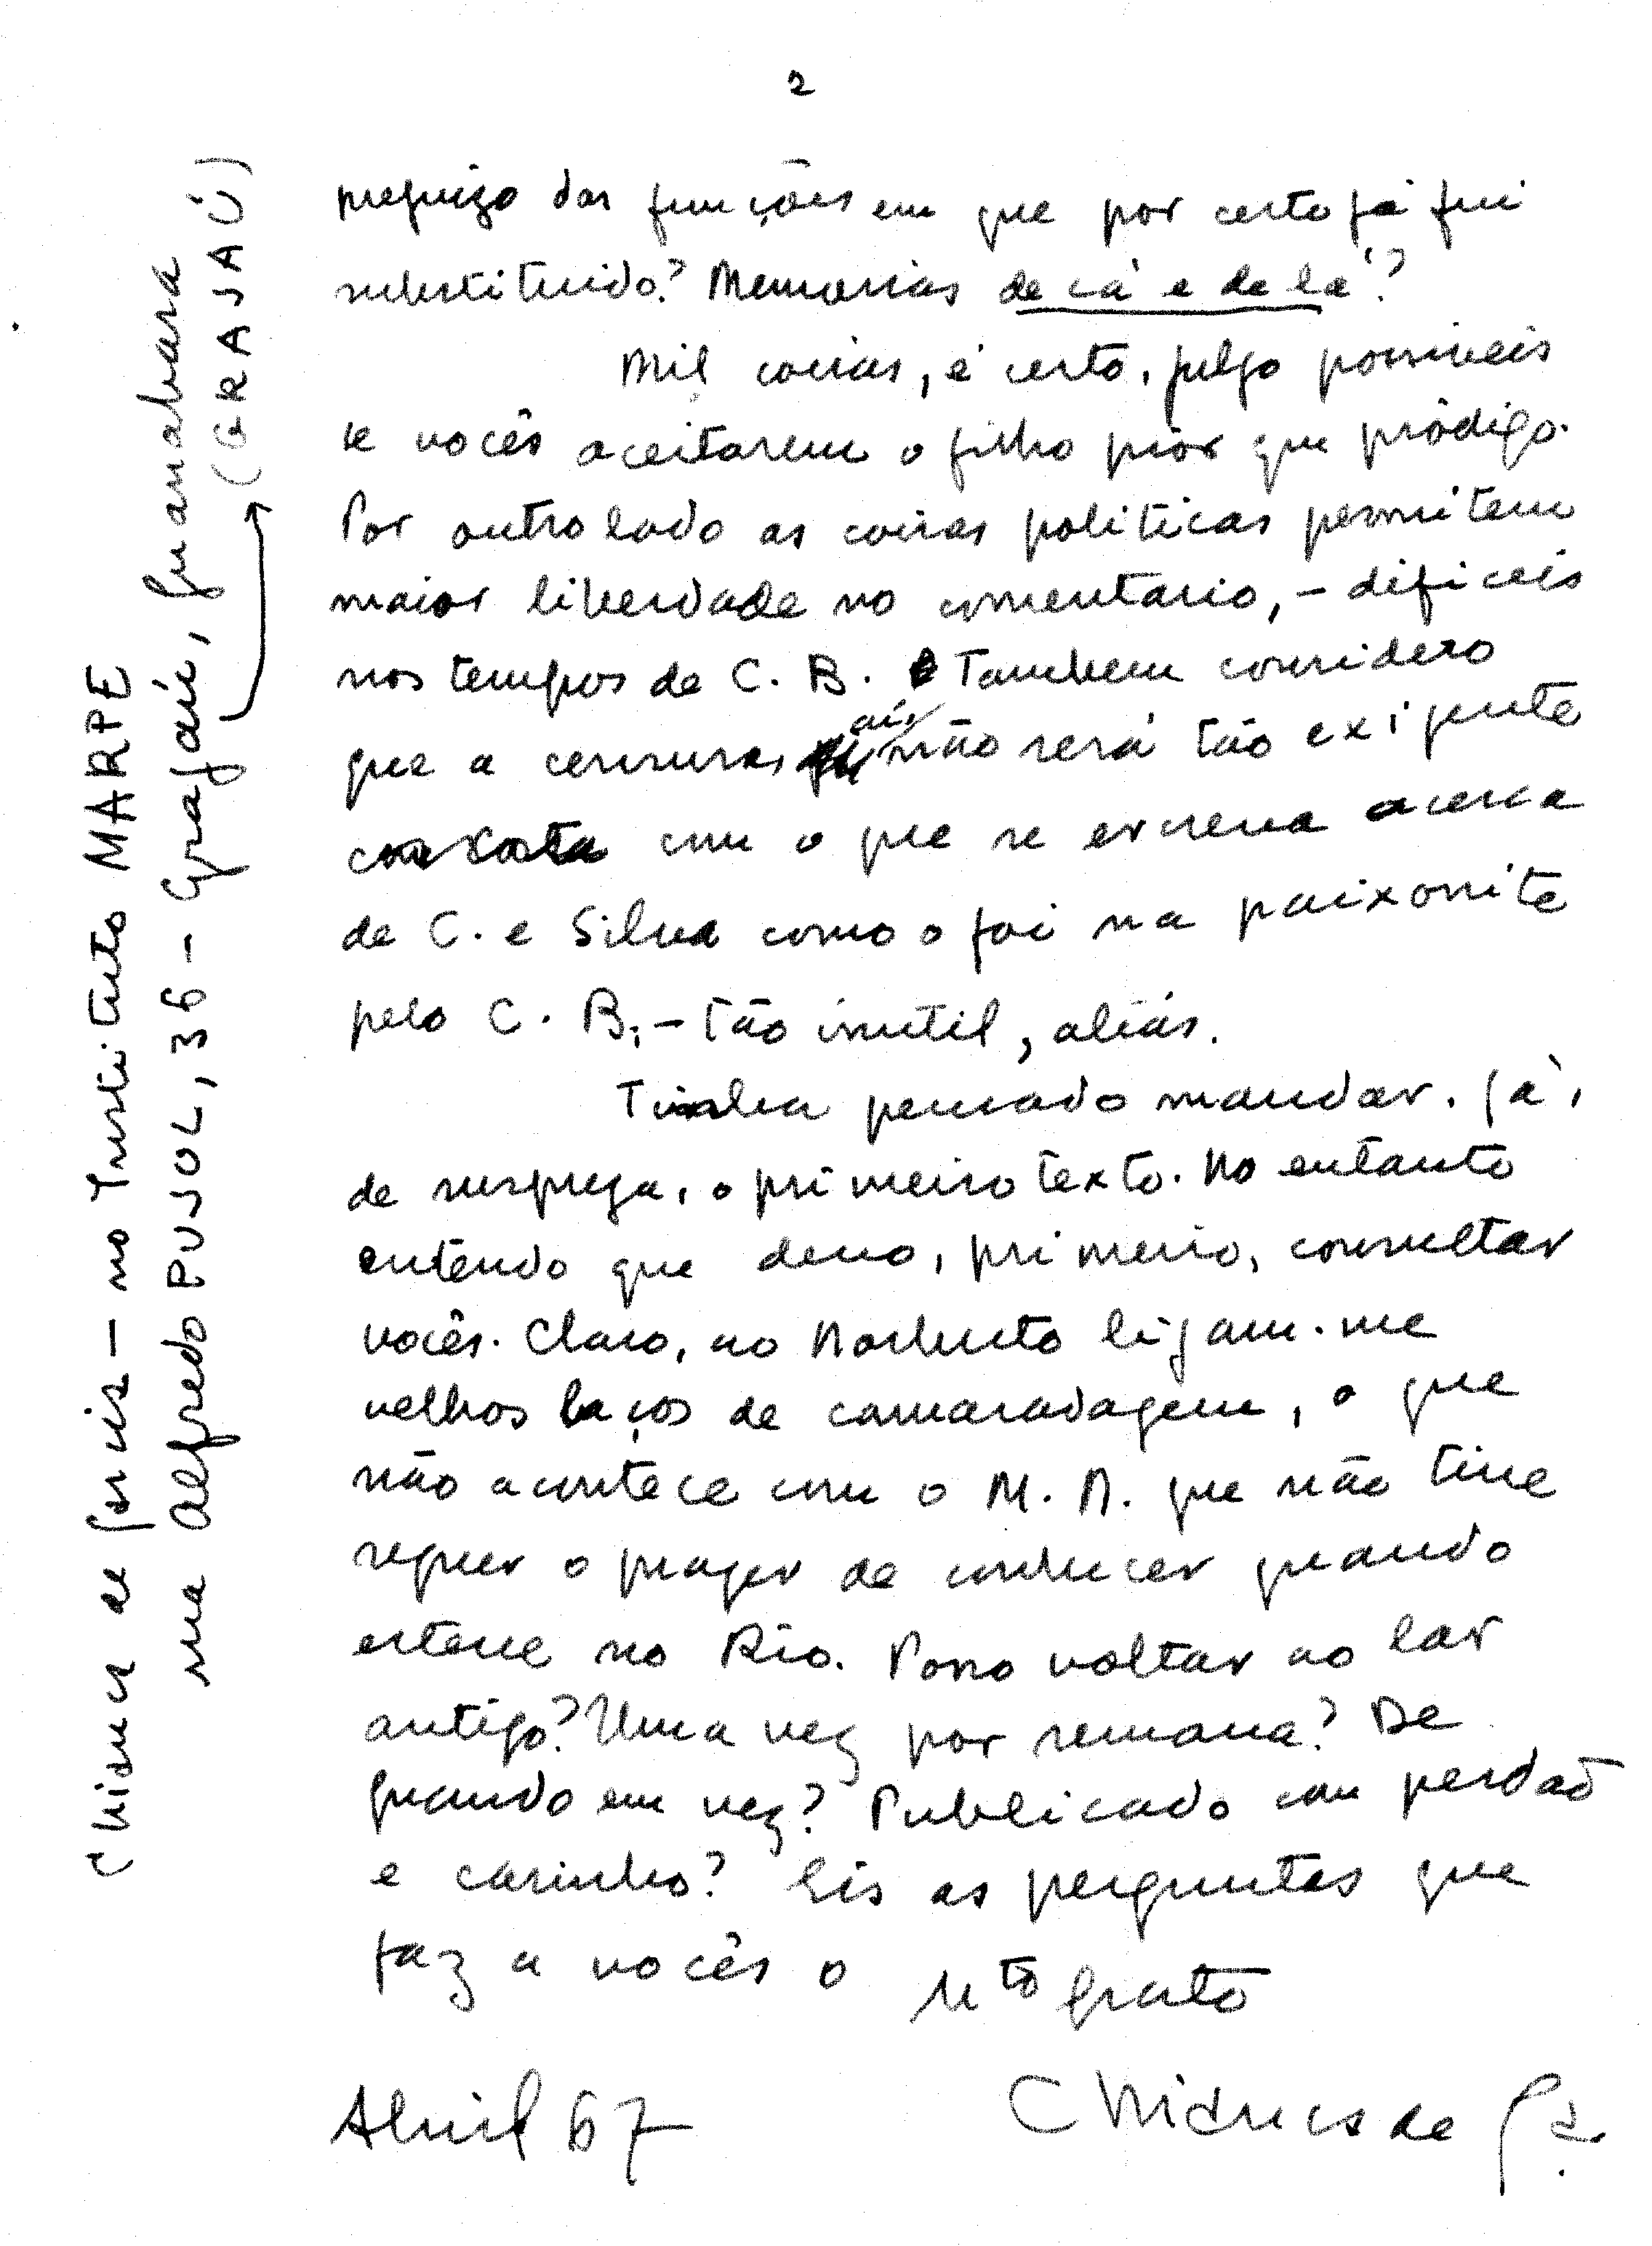 2
prejuizo das funções em que por certo já fui
substituido? Memorias de cá e de lá?
Mil coisas, é certo, julgo possiveis
se vocês aceitarem o filho piór que pródigo.
Por outro lado as coisas politicas permitem
maior liberdade no comentario, - dificeis
nos tempos de C. B. Tambem considero
que a censura, aí, não será tão exigente
com o que se escreva acerca
de C. e Silva como o foi na paixonite
pelo C. B., - tão inutil, aliás.
Tinha pensado mandar, já,
de surpreza, o primeiro texto. No entanto
entendo que devo, primeiro, consultar
vocês. Claro, ao Norberto ligam-me
velhos laços de camaradagem, o que
não acontece com o M. A. que não tive
sequer o prazer de conhecer quando
esteve no Rio. Posso voltar ao lar
antigo? Uma vez por semana? De
quando em vez? Publicado com perdão
e carinho? Eis as perguntas que
faz a vocês o Mto grato
Abril 67
de
no Instituto MARPE
rua Alfredo PUJOL, 36 - Grajaú, Guanabara
(GRAJAÚ)